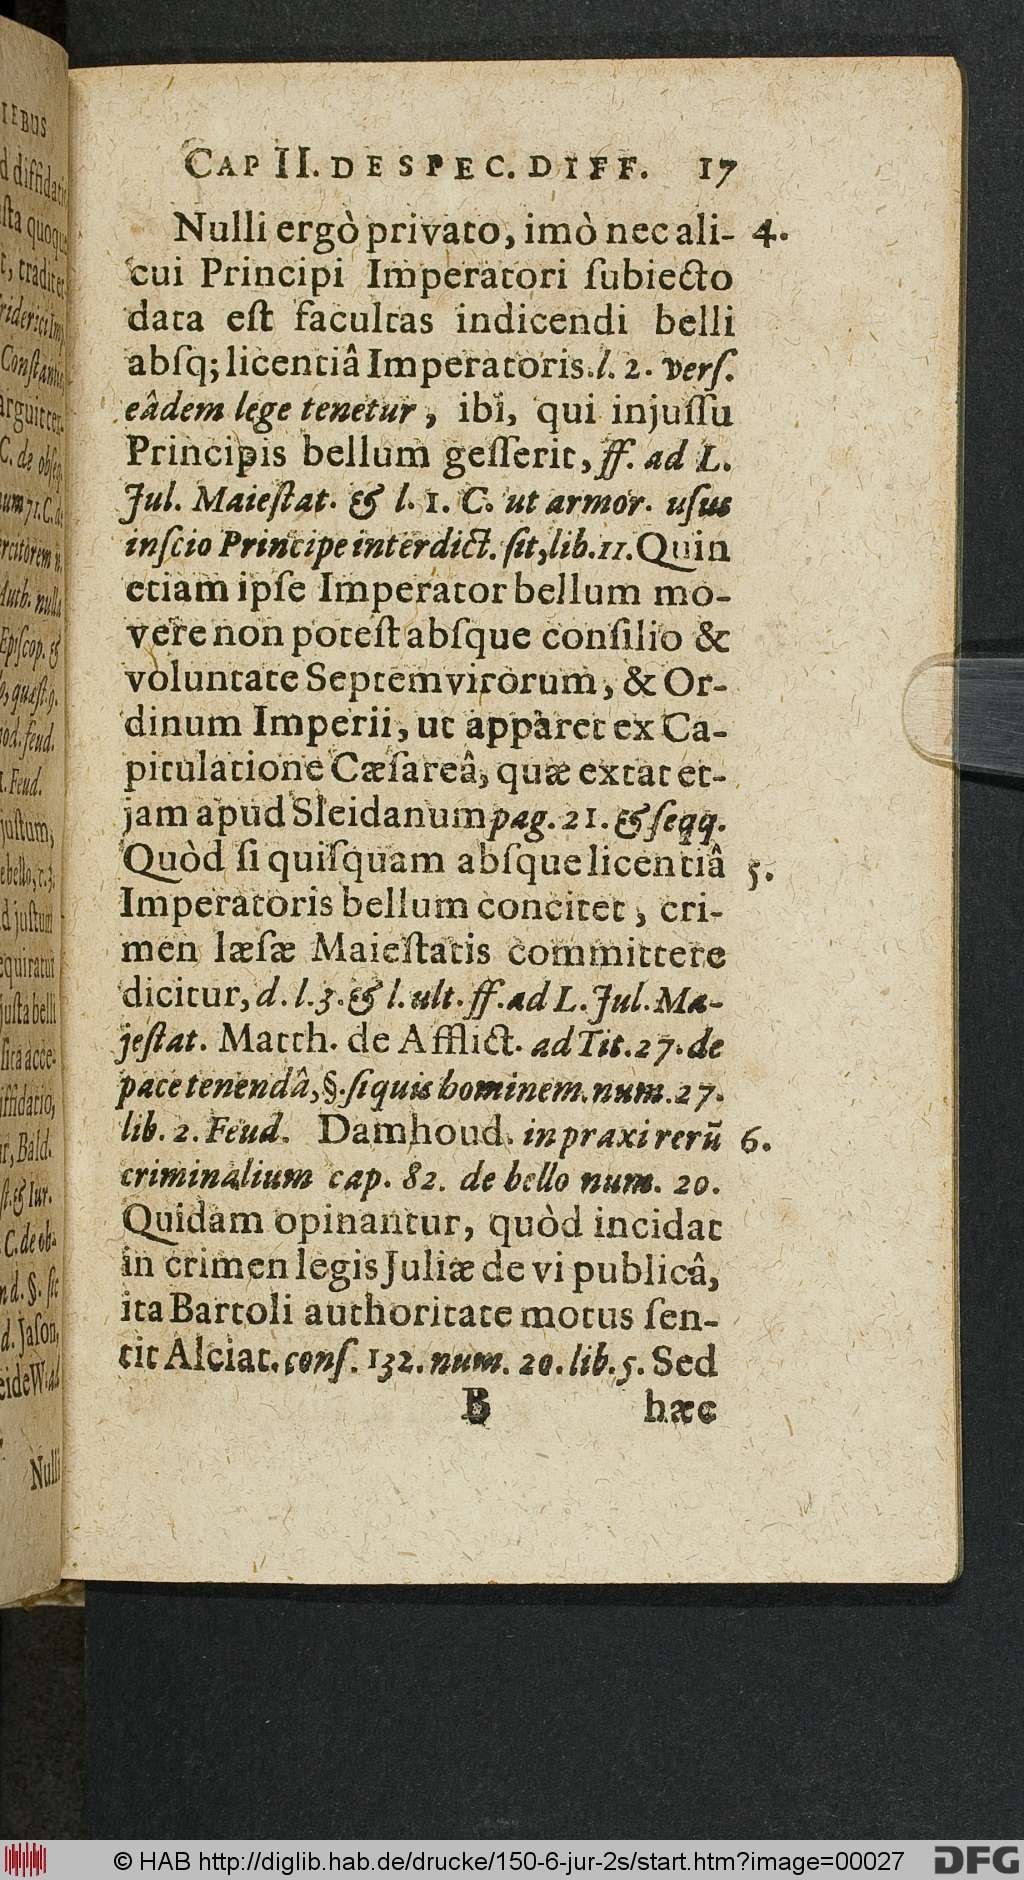 CAP II. DE SPEC. DIFF. 17
Nulli ergò privato, imò nec ali- 4.
cui Principi Imperatori ſubiecto
data eſt facultas indicendi belli
abſq; licentiâ Imperatoris. l. 2. verſ.
eâdem lege tenetur, ibi, qui injuſſu
Principis bellum geſſerit, ff. ad L.
Jul. Maieſtat. & l. 1. C. ut armor. uſus
inſcio Principe interdict. ſit, lib. 11. Quin
etiam ipſe Imperator bellum mo-
vere non poteſt abſque conſilio &
voluntate Septemvirorum, & Or-
dinum Imperii, ut apparet ex Ca-
pitulatione Cæſareâ, quæ extat et-
jam apud Sleidanum pag. 21. & ſeqq.
Quòd ſi quiſquam abſque licentiâ 5.
Imperatoris bellum concitet, cri-
men læſæ Maieſtatis committere
dicitur, d. l. 3. & l. ult. ff. ad L. Jul. Ma-
jeſtat. Matth. de Afflict. ad Tit. 27. de
pace tenendâ, §. ſi quis hominem. num. 27.
lib. 2. Feud. Damhoud. in praxi rerū 6.
criminalium cap. 82. de bello num. 20.
Quidam opinantur, quòd incidat
in crimen legis Juliæ de vi publicâ,
ita Bartoli authoritate motus ſen-
tit Alciat. conſ. 132. num. 20. lib. 5. Sed
B hæc
IEBUS
d diffidatio
iſta quoque
t, traditer
Friderici Imp.
Conſtantin
arguitter.
C. de obſeq.
num 71. C. de
Auth. nulla
Epiſcop. &
quæſt. 9.
od. feud.
1. Feud.
juſtum,
ebello, r. 3.
d juſtum
equiratur
juſta belli
ſita acce-
iffidatio,
r, Bald.
ſt. & Iur.
C. de ob-
nd. §. ſic
d. Jaſon,
Nulli
© HAB http://diglib.hab.de/drucke/150-6-jur-2s/start.htm?image=00027
DFG